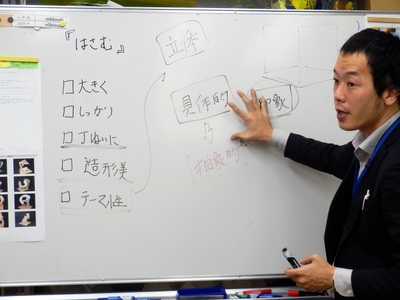 『はさむ』
□ 大きく
□ しっかり
□ 丁ねいに
□ 造形美
□ テーマ性
立体
具体的
印象
抽象的